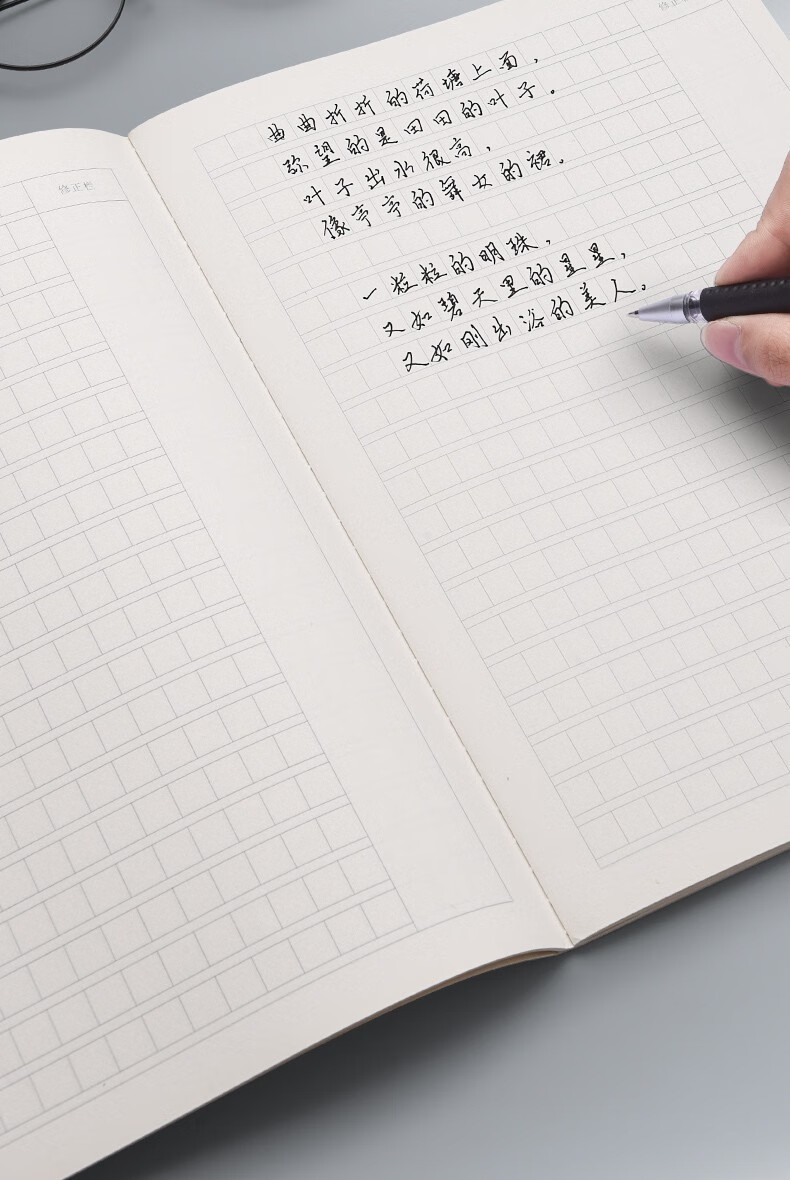 修正栏
曲曲折折的荷塘上面，
弥望的是田田的叶子。
叶子出水很高，
像亭亭的舞女的裙。
一粒粒的明珠，
又如碧天里的星星，
又如刚出浴的美人。